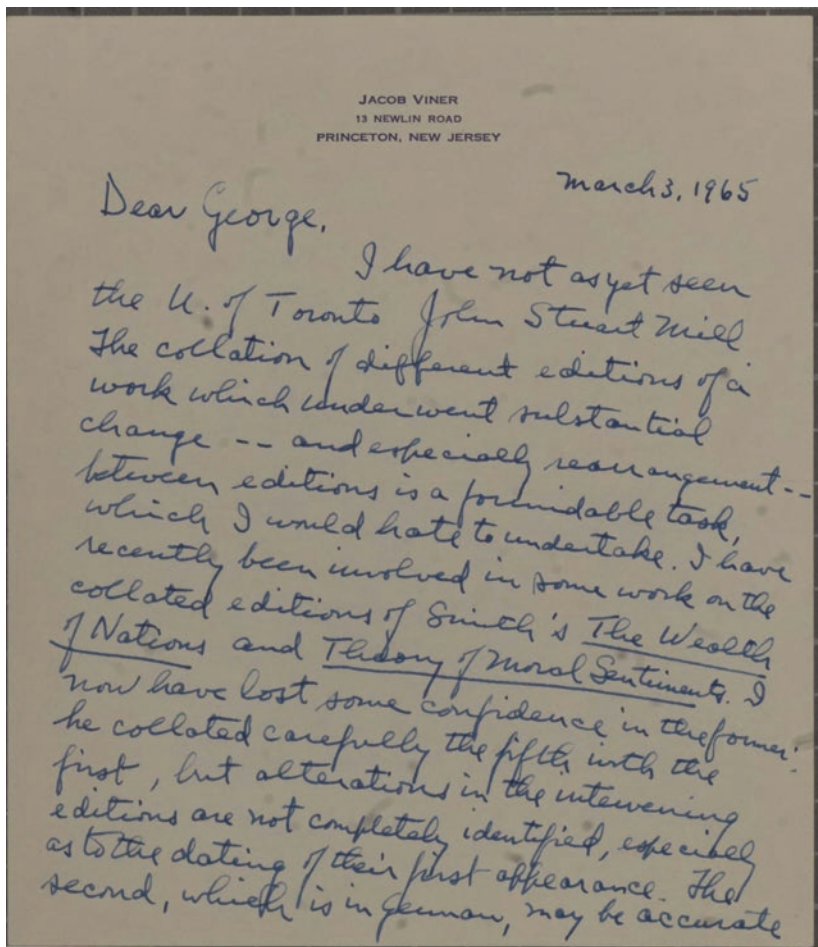 JACOB VINER
13 NEWLIN ROAD
PRINCETON, NEW JERSEY
March 3, 1965
Dear George,
I have not as yet seen
the U. of Toronto John Stuart Mill
The collation of different editions of a
work which underwent substantial
change -- and especially rearrangement --
between editions is a formidable task,
which I would hate to undertake. I have
recently been involved in some work on the
collated editions of Smith's The Wealth
of Nations and Theory of Moral Sentiments. I
now have lost some confidence in the former:
he collated carefully the fifth with the
first, but alterations in the intervening
editions are not completely identified, especially
as to the dating of their first appearance. The
second, which is in German, may be accurate